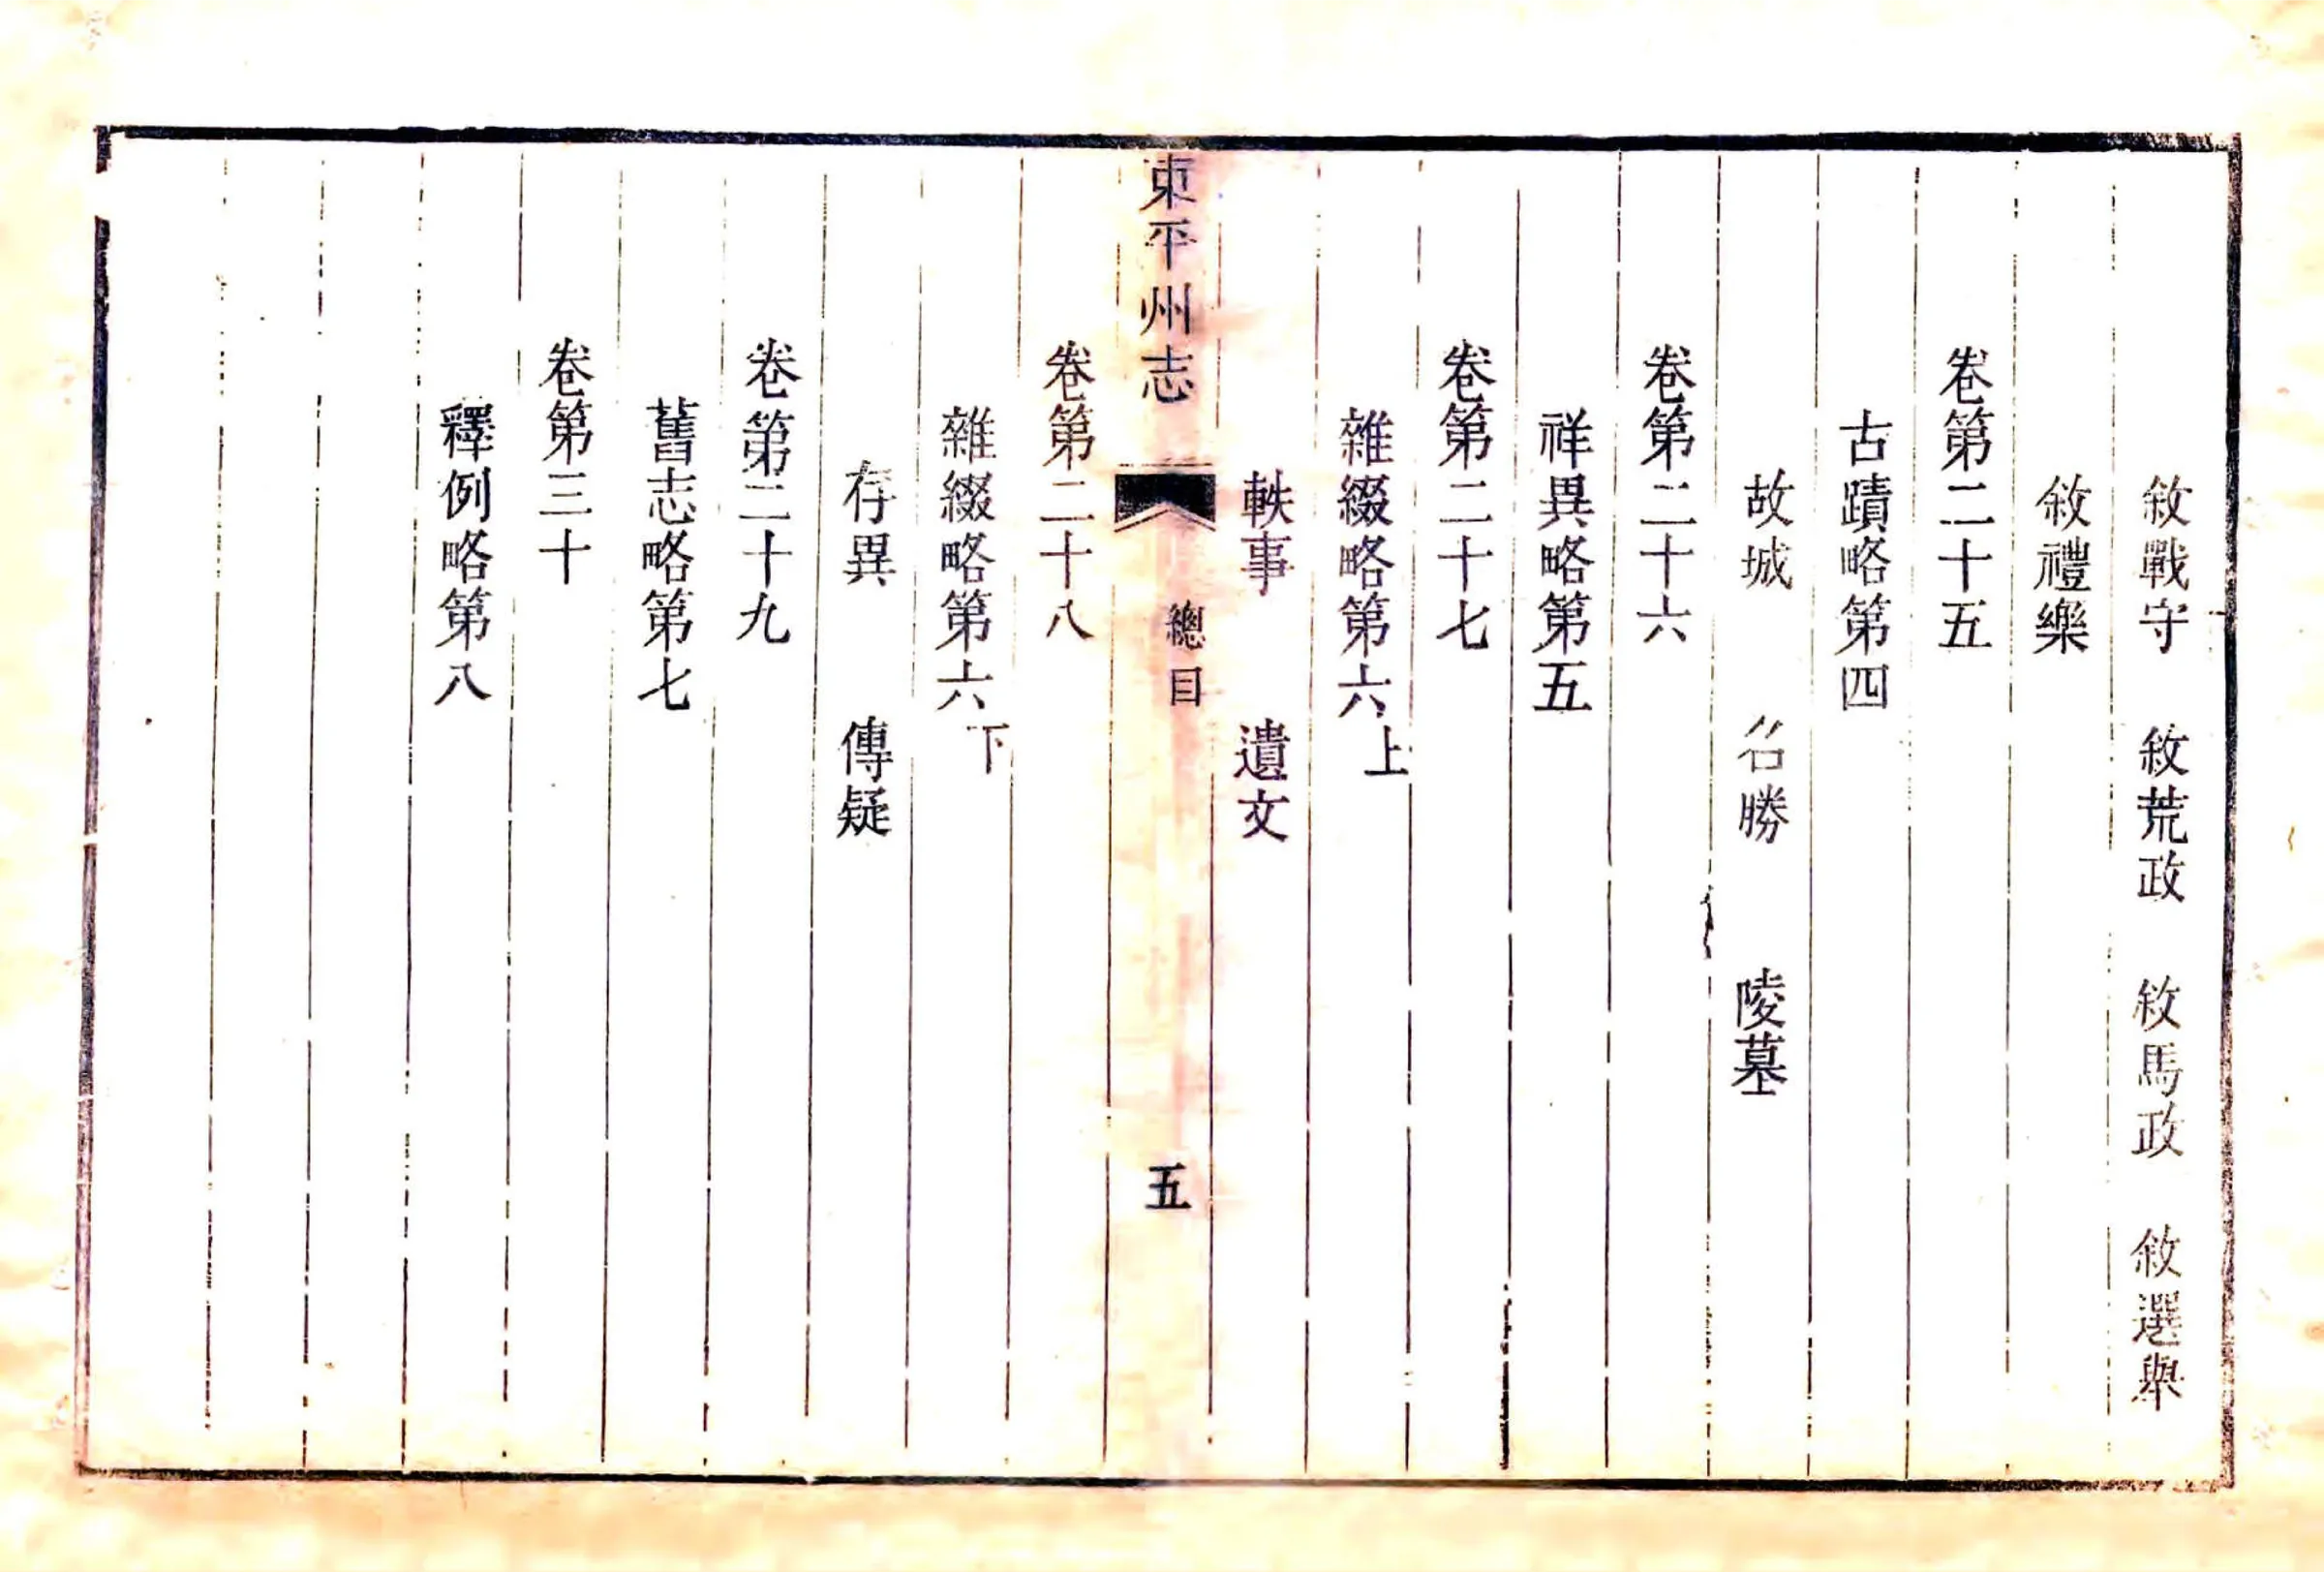 敘戰守　敘荒政　敘馬政　敘選舉
敘禮樂
卷第二十五
古蹟略第四
故城　名勝　陵墓
卷第二十六
祥異略第五
卷第二十七
雜綴略第六上
軼事　遺文
東平州志　總目　五
卷第二十八
雜綴略第六下
存異　傳疑
卷第二十九
舊志略第七
卷第三十
釋例略第八